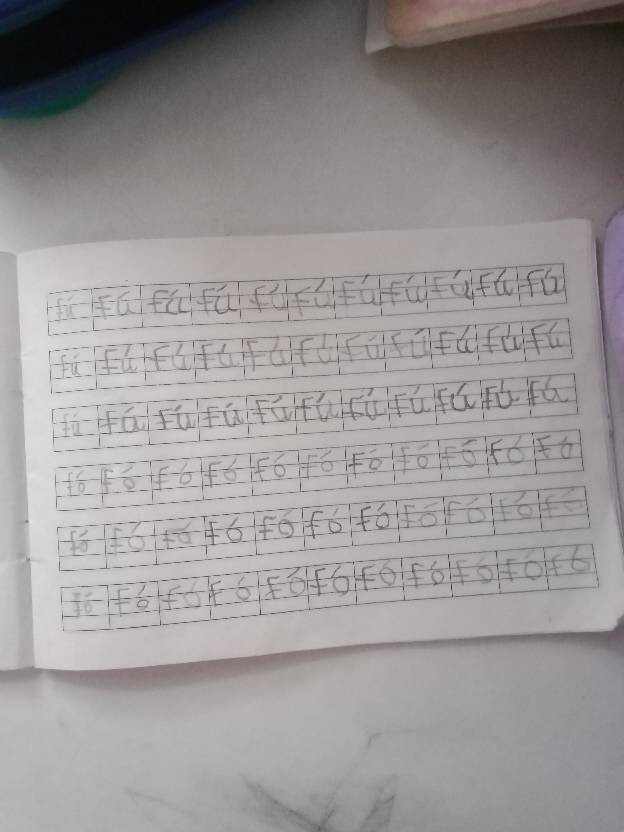 fú fú fú fú fú fú fú fú fú fú fú
fú fú fú fú fú fú fú fú fú fú fú
fú fú fú fú fú fú fú fú fú fú fú
fó fó fó fó fó fó fó fó fó fó fó
fó fó fó fó fó fó fó fó fó fó fó
fó fó fó fó fó fó fó fó fó fó fó